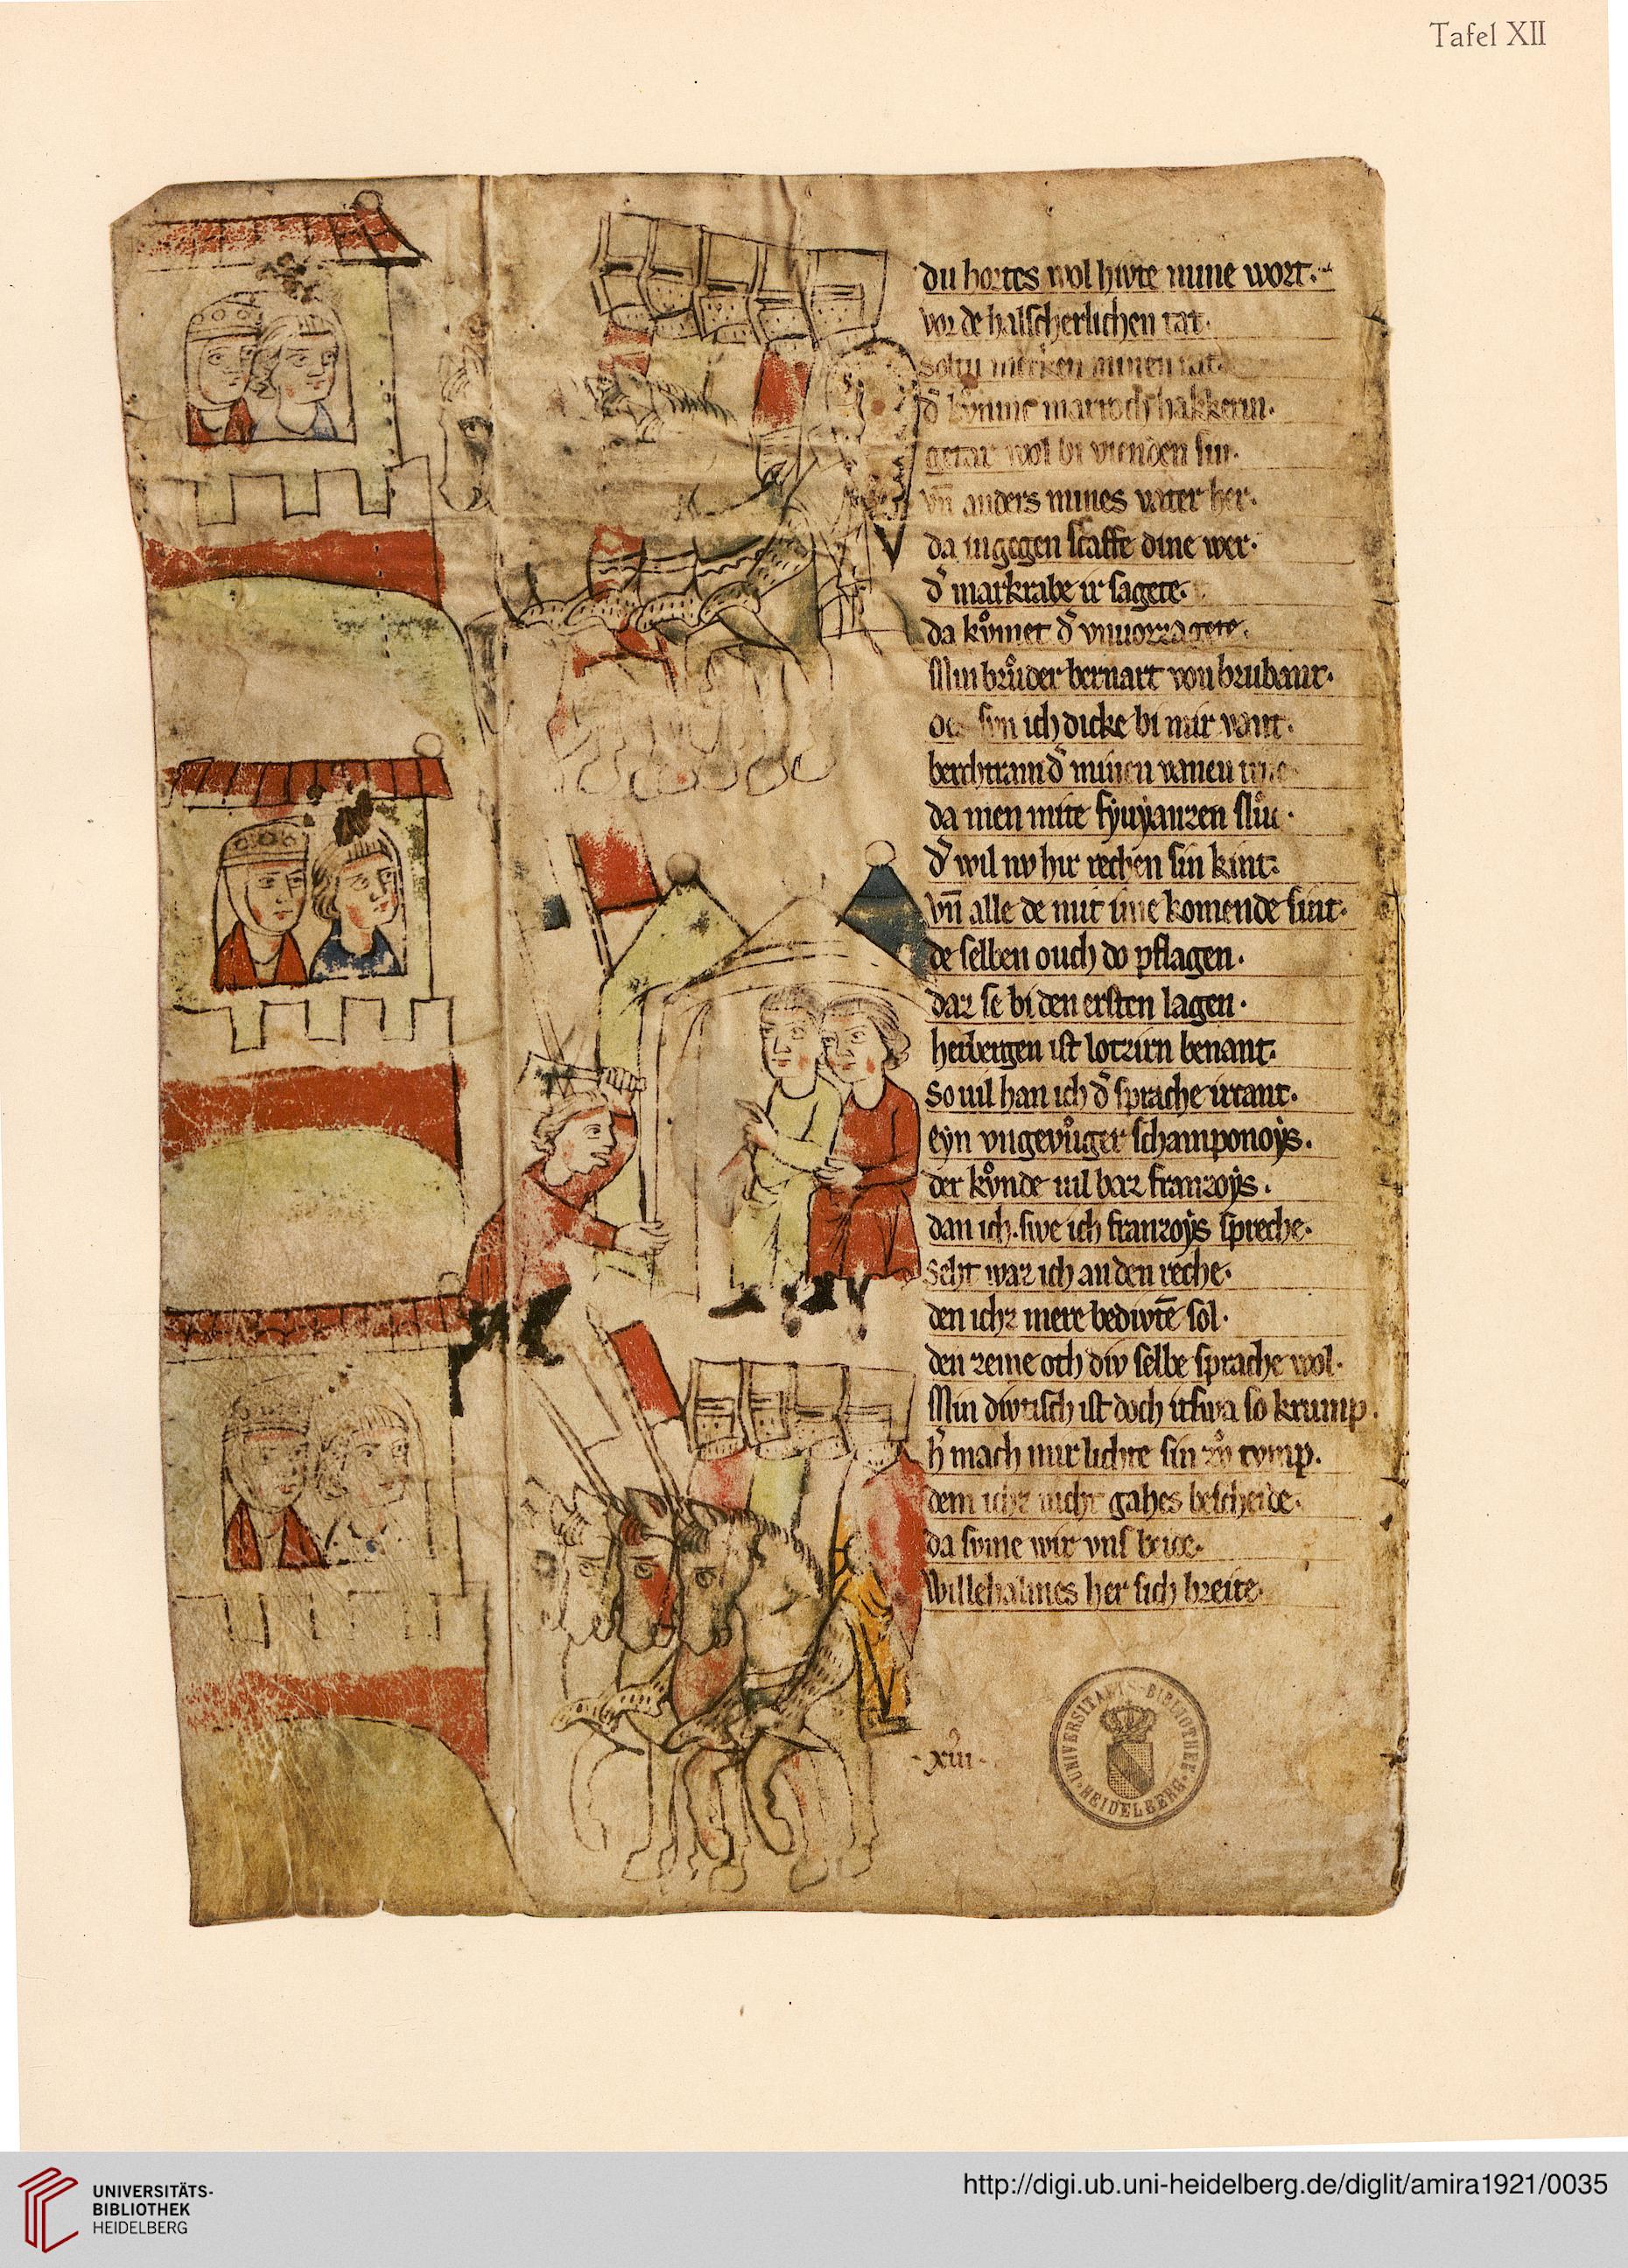 Tafel XII
du hortes wol hivte mine wort.
vor de halscherlichen tat.
soltu merken minen rat.
getar wol bi vienden sin.
vn̄ anders mines vater her.
da ingegen scaffe dine wer.
d͛ markrabe ir sagete.
da kůmet d͛ vnuorzagete.
Min brůder bernart von brubant.
sẏn ich dicke bi mir vant.
berchtram d͛ minen vanen
da men mite sluͦc.
d͛ wil nv hir rechen sin kint.
vn̄ alle de mit ime komende sint.
de selben ouch do pflagen.
daz se bi den ersten lagen.
herbergen ist lotzirn benant.
so uil han ich d͛ sprache irkant.
eẏn vngevůger schamponoẏs.
der kůnde uil baz franzoẏs.
dan ich. swe ich franzoẏs spreche.
seht waz ich an den reche.
den ichz mere bedivtē sol.
den zeme och div selbe sprache wol.
Min divtisch ist doch itswa so krump.
h͛ mach mir lichte sin zů tvmp.
dem ichz nicht gahes bescheide.
da svme wir vns beide.
Willehalmes her sich breite.
UNIVERSITAETS-BIBLIOTHEK · HEIDELBERG ·
UNIVERSITÄTS-
BIBLIOTHEK
HEIDELBERG
http://digi.ub.uni-heidelberg.de/diglit/amira1921/0035